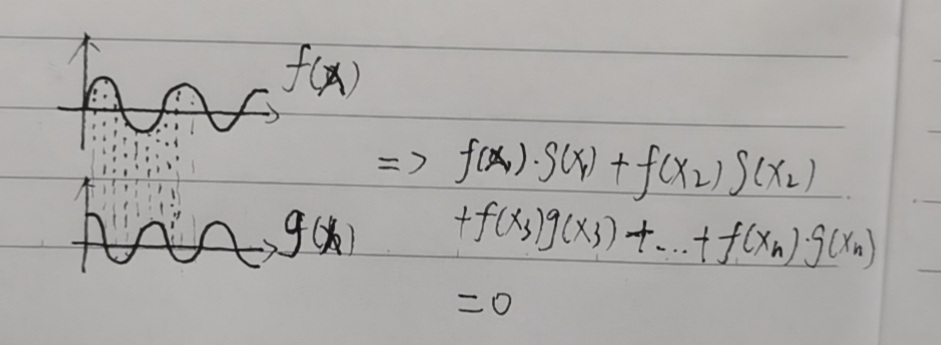 f(x)
=> f(x₁)·g(x₁)+f(x₂)g(x₂)
g(x)
+f(x₃)g(x₃)+...+f(xₙ)·g(xₙ)
=0